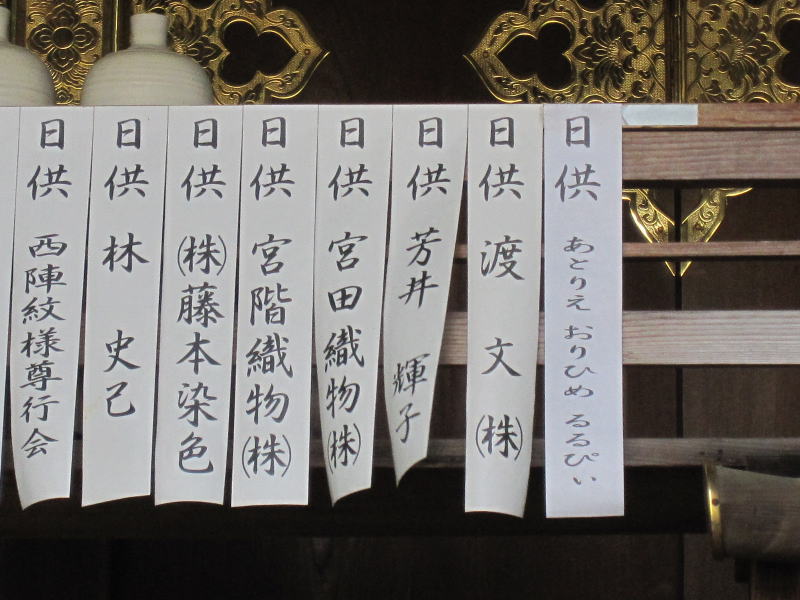 日供 あとりえ おりひめ るるぴぃ
日供 渡文㈱
日供 芳井 輝子
日供 宮田織物㈱
日供 宮階織物㈱
日供 ㈱藤本染色
日供 林 史己
日供 西陣紋様尊行会